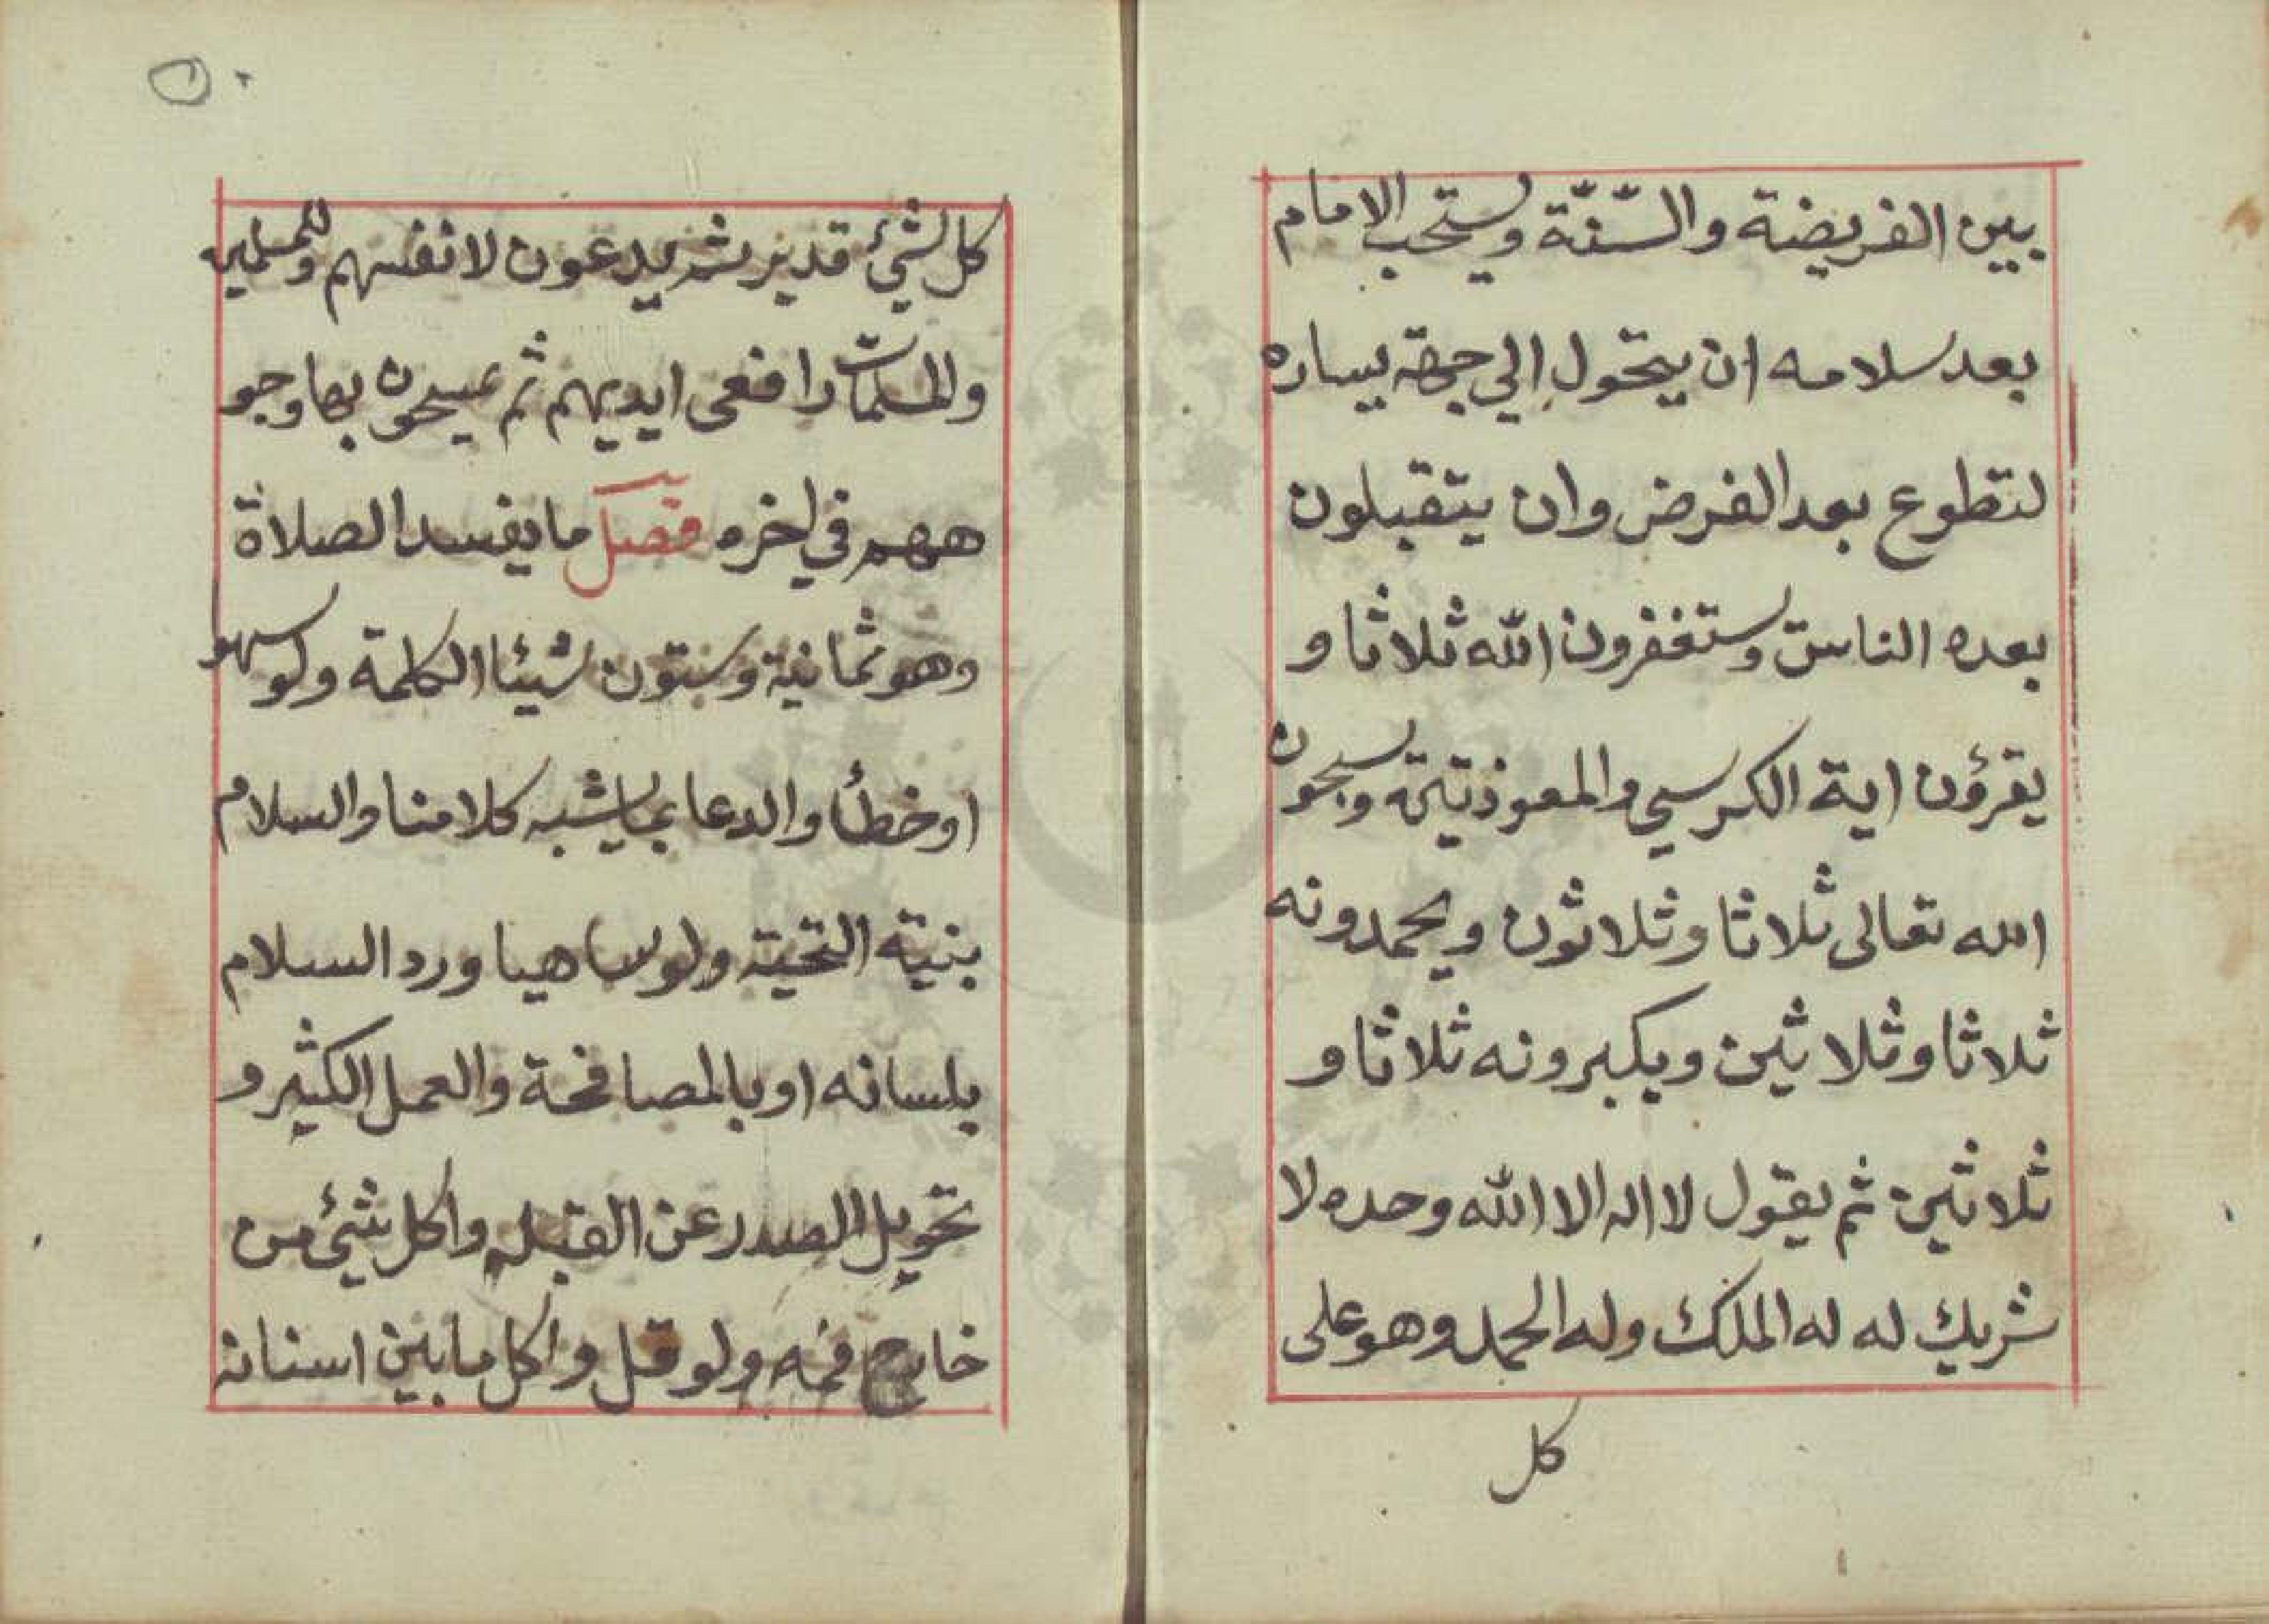 بين الفريضة والسّنّة ويستحب الامام
بعد سلامه ان يتحول الي جهة يساره
لتطوع بعد الفرض وان يتقبلون
بعده الناس ويستغفرون الله ثلاثا و
يقرؤن اية الكرسي والمعوذتين ويسبحون
الله تعالى ثلاثا وثلاثون ويحمدونه
ثلاثا وثلاثين ويكبرونه ثلاثا و
ثلاثين ثم يقول لا اله الا الله وحده لا
شريك له له الملك وله الحمد وهو على
كل
كل شيئ قدير ثم يدعون لانفسهم وللمسلمين
والمسلمات رافعى ايديهم ثم يمسحون بها وجو
ههم في اخره فصل ما يفسد الصلاة
وهو ثمانية وستون شيئا الكلمة ولو سهو
او خطأ والدعا بما يشبه كلامنا والسلام
بنية التحية ولو ساهيا ورد السلام
بلسانه او بالمصافحة والعمل الكثير و
تحويل الصدر عن القبله واكل شيئ من
خارج فمه ولو قل واكل ما بين اسنانه